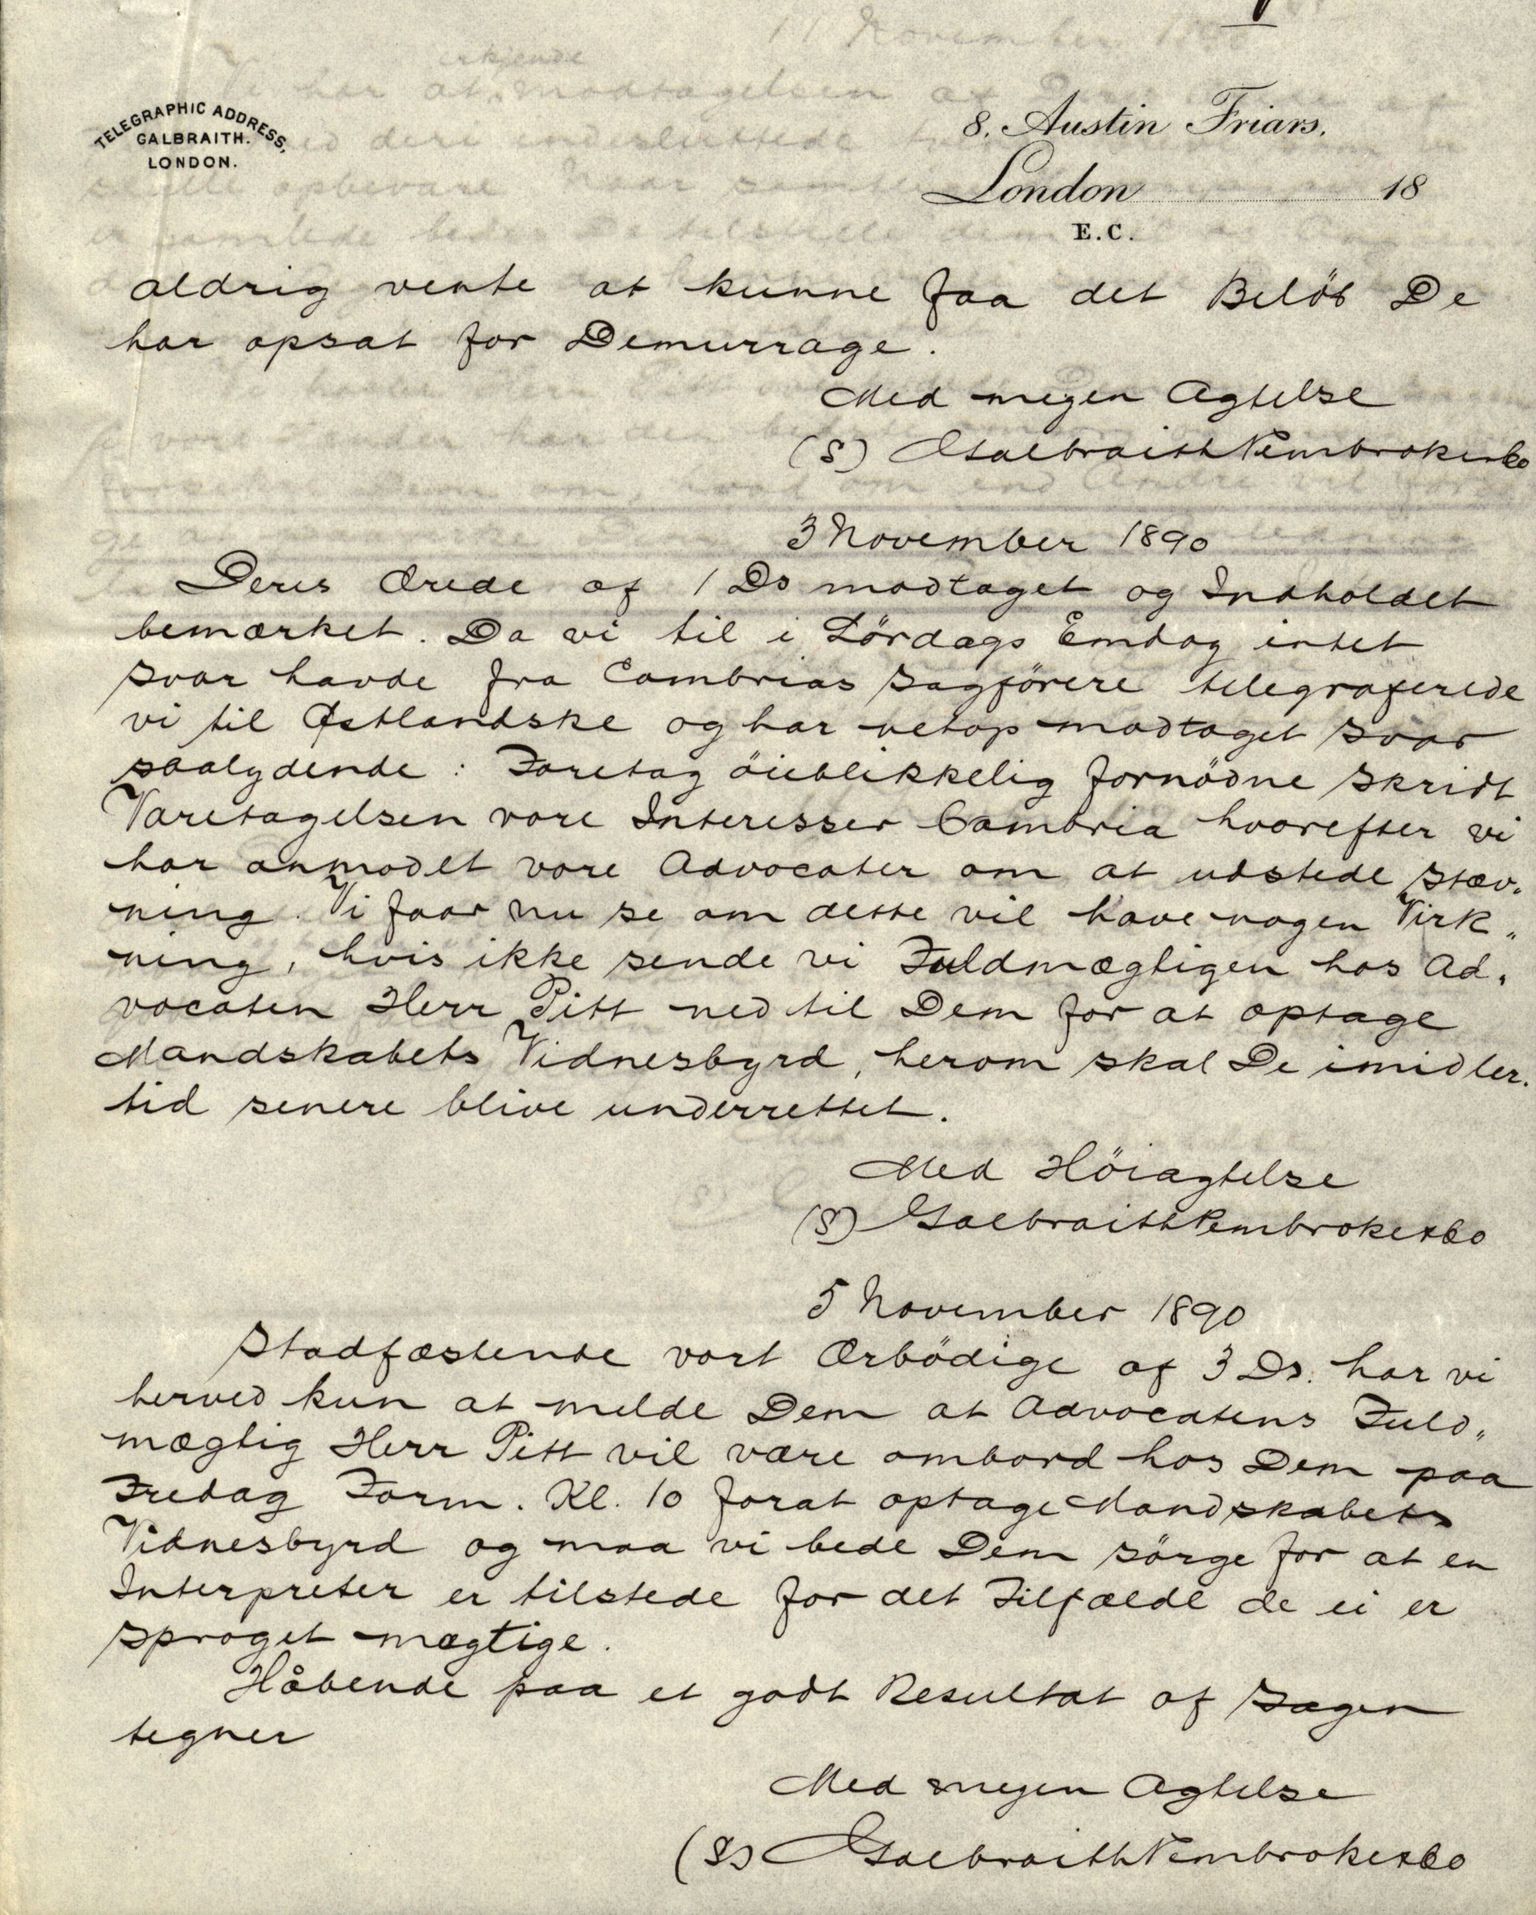 TELEGRAPHIC ADDRESS,
GALBRAITH.
LONDON.
8. Austin Friars.
London 18
E.C.
aldrig vente at kunne faa det Belöb De
har opsat for Demurrage.
Med megen Agtelse
(S) Galbraith Pembroke & Co
3 November 1890
Deres Ærede af 1 Ds modtaget og Indholdet
bemærket. Da vi til i Lördags Emdag intet
svar havde fra Cambrias Sagförere telegraferede
vi til Østlandske og har netop modtaget svar
saalydende: Foretag öieblikkelig fornödne skridt
Varetagelsen vore Interesser Cambria hvorefter vi
har anmodet vore Advocater om at udstede Stæv„
ning. Vi faar nu se om dette vil have nogen Virk„
ning, hvis ikke sende vi Fuldmægtigen hos Ad„
vocaten Herr Pitt ned til Dem for at optage
Mandskabets Vidnesbyrd, herom skal De imidler„
tid senere blive underrettet.
Med Höiagtelse
(S) Galbraith Pembroke & Co
5 November 1890
Stadfæstende vort Ærbödige af 3 Ds. har vi
herved kun at melde Dem at Advocatens Fuld„
mægtig Herr Pitt vil være ombord hos Dem paa
Fredag Form. Kl. 10 forat optage Mandskabets
Vidnesbyrd og maa vi bede Dem sörge for at en
Interpreter er tilstede for det Tilfælde de ei er
sproget mægtige.
Håbende paa et godt Resultat af Sagen
tegner
Med megen Agtelse
(S) Galbraith Pembroke & Co